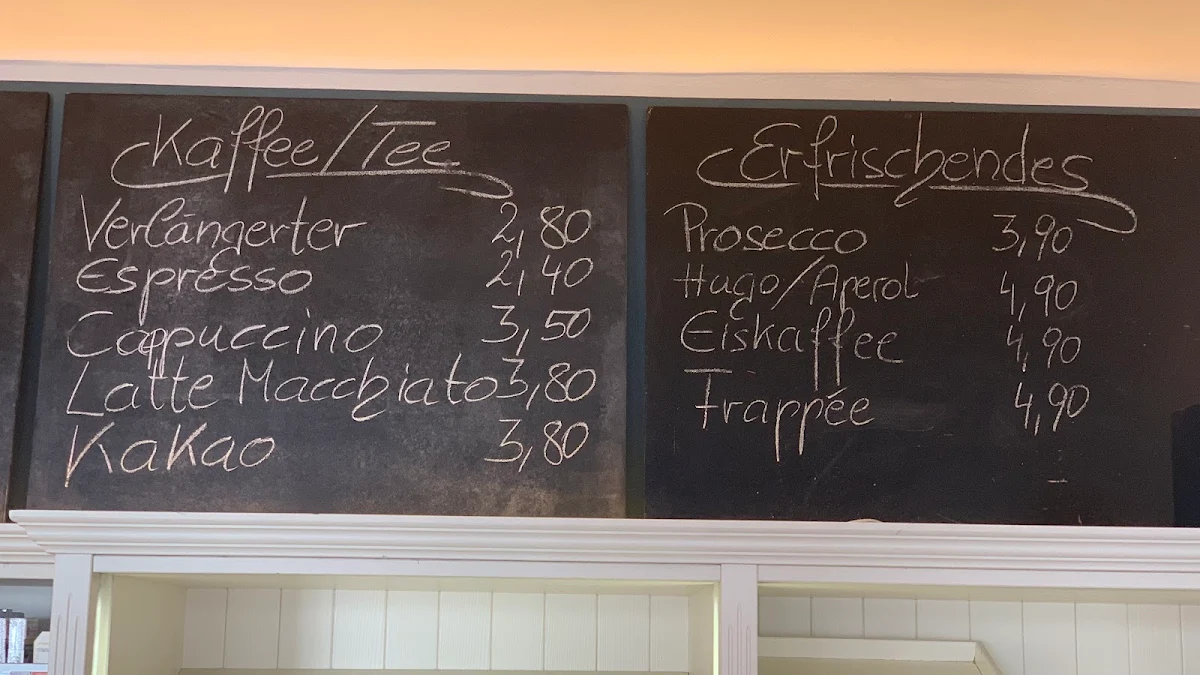 Kaffee/Tee
Verlängerter 2,80
Espresso 2,40
Cappuccino 3,50
Latte Macchiato 3,80
Kakao 3,80
Erfrischendes
Prosecco 3,90
Hugo/Aperol 4,90
Eiskaffee 4,90
Frappée 4,90